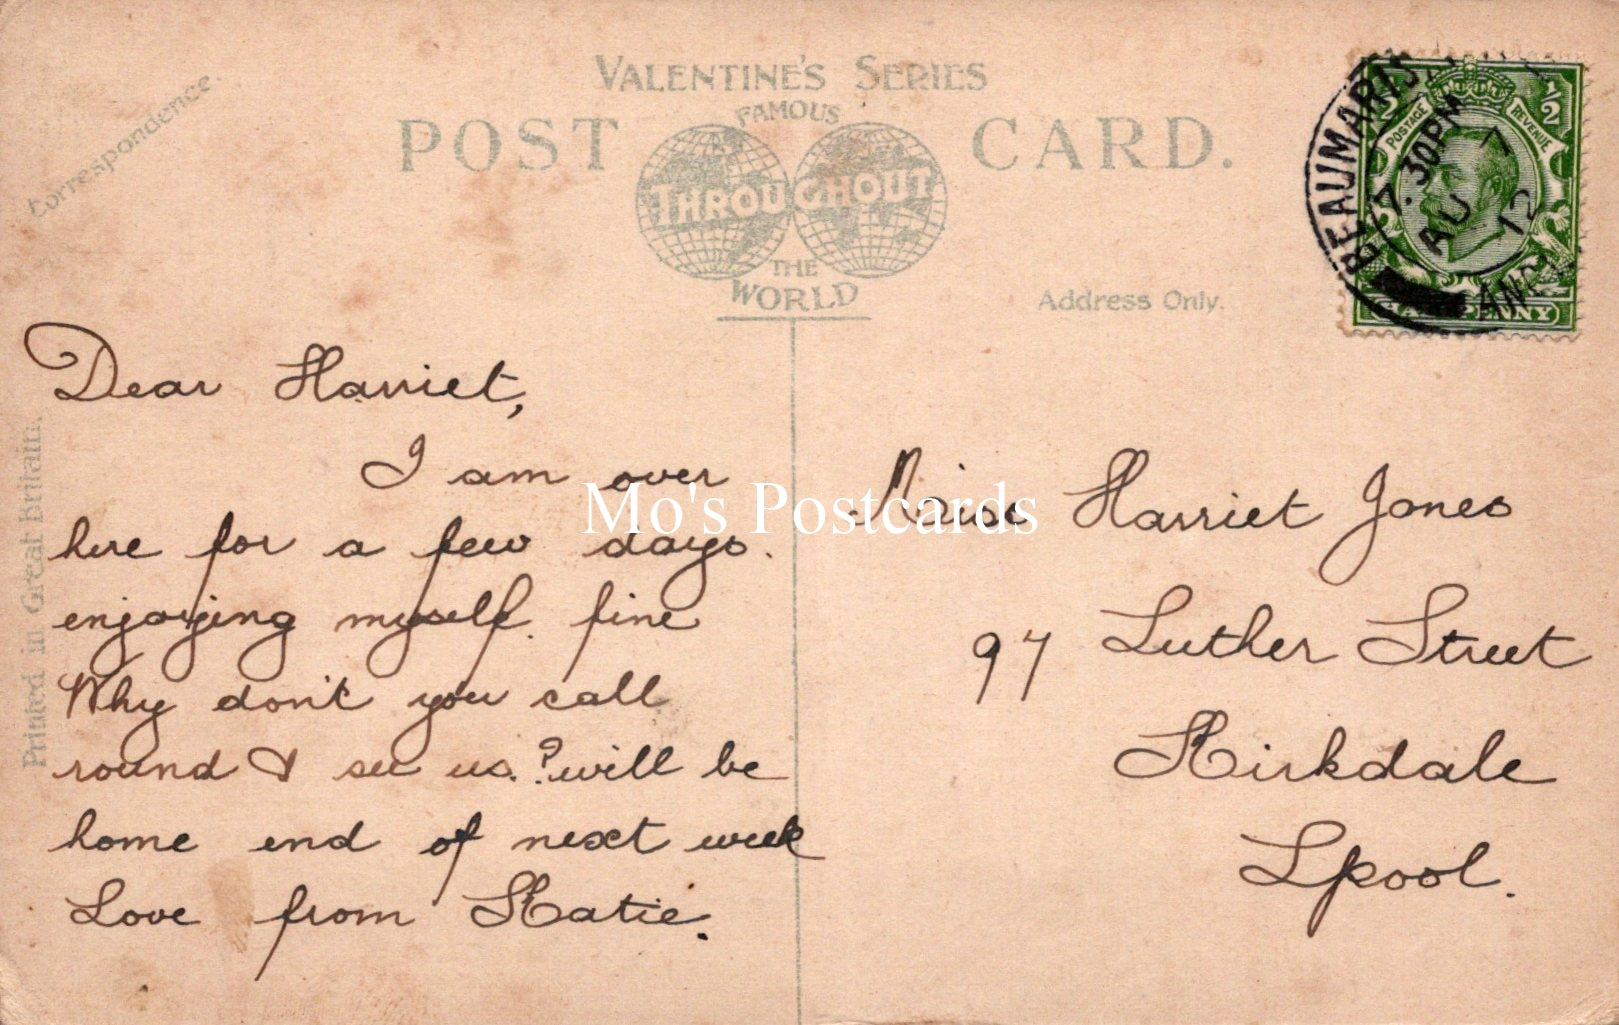 Correspondence.
VALENTINE'S SERIES
FAMOUS
POST CARD.
THROUGHOUT
THE
WORLD
Address Only.
Printed in Great Britain.
BEAUMARIS
7.30PM
AU 7
12
POSTAGE
REVENUE
1/2
Dear Harriet,
I am over
here for a few days.
enjoying myself. fine
Why don't you call
round & see us.? will be
home end of next week
Love from Katie.
Miss Harriet Jones
97 Luther Street
Kirkdale
Lpool.
Mo's Postcards